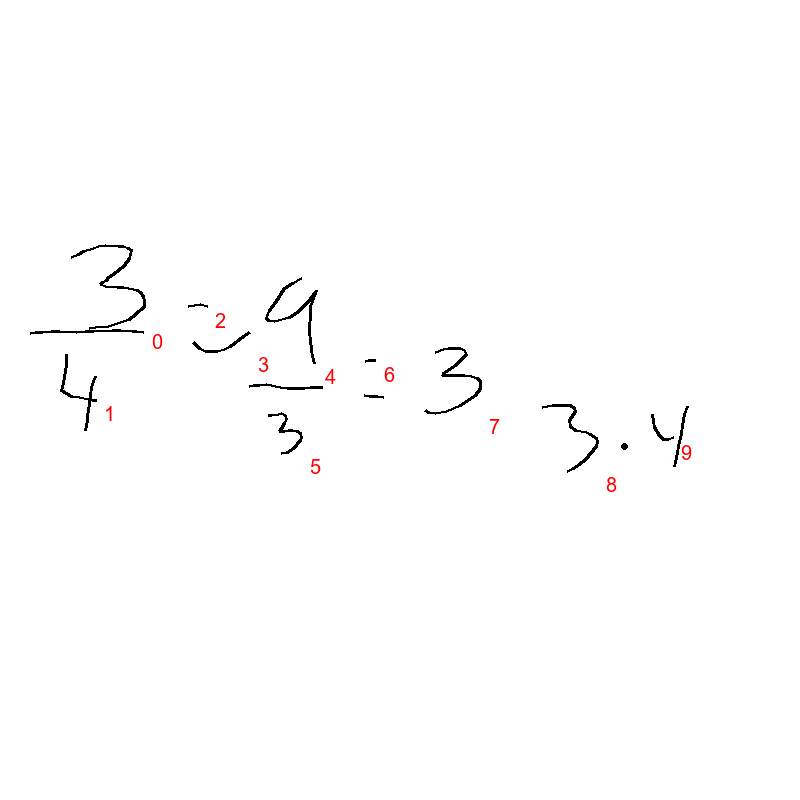 3/4 = 9/3 = 3 3 · 4
0 1 2 3 4 5 6 7 8 9